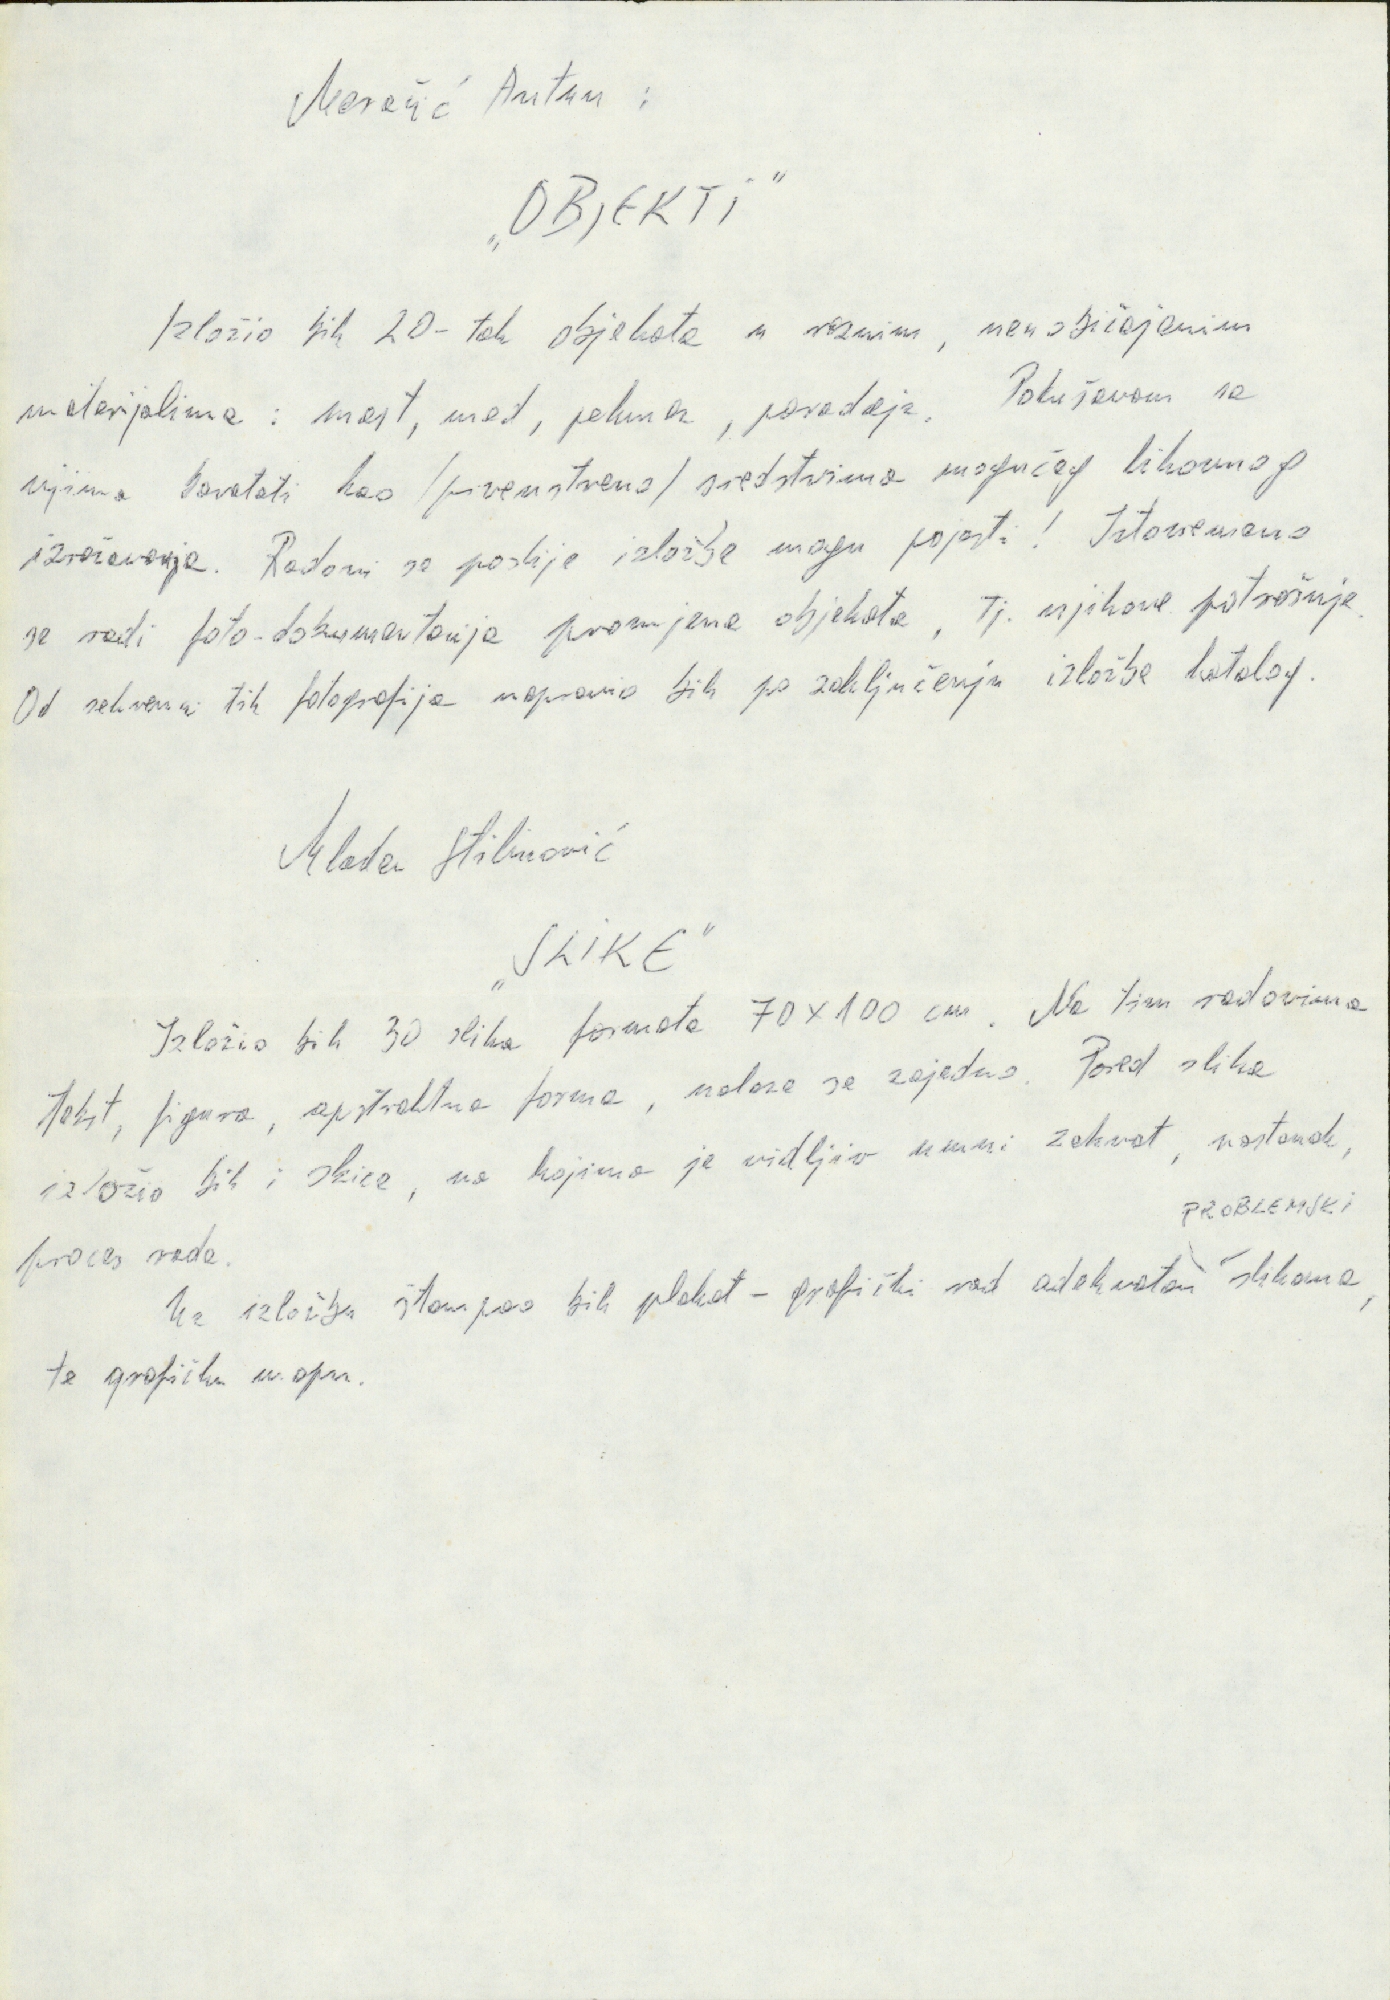 Maračić Antun :
„OBJEKTI"
Izložio bih 20-tak objekata u raznim, neuobičajenim
materijalima : mast, med, pekmez, paradajz. Pokušavam se
njima bavati kao /prvenstveno/ sredstvima mogućeg likovnog
izražavanja. Radovi se poslije izložbe mogu pojesti! Istovremeno
se radi foto-dokumentacija promjena objekata, tj. njihove potrošnje.
Od sekvenci tih fotografija napravio bih po zaključenju izložbe katalog.
Mladen Stilinović
„SLIKE"
Izložio bih 30 slika formata 70x100 cm. Na tim radovima
tekst, figura, apstraktna forma, nalaze se zajedno. Pored slika
izložio bih i skice, na kojima je vidljiv umni zahvat, nastanak,
proces rada.
PROBLEMSKI
Uz izložbu štampao bih plakat - grafički rad adekvatan slikama,
te grafičku mapu.